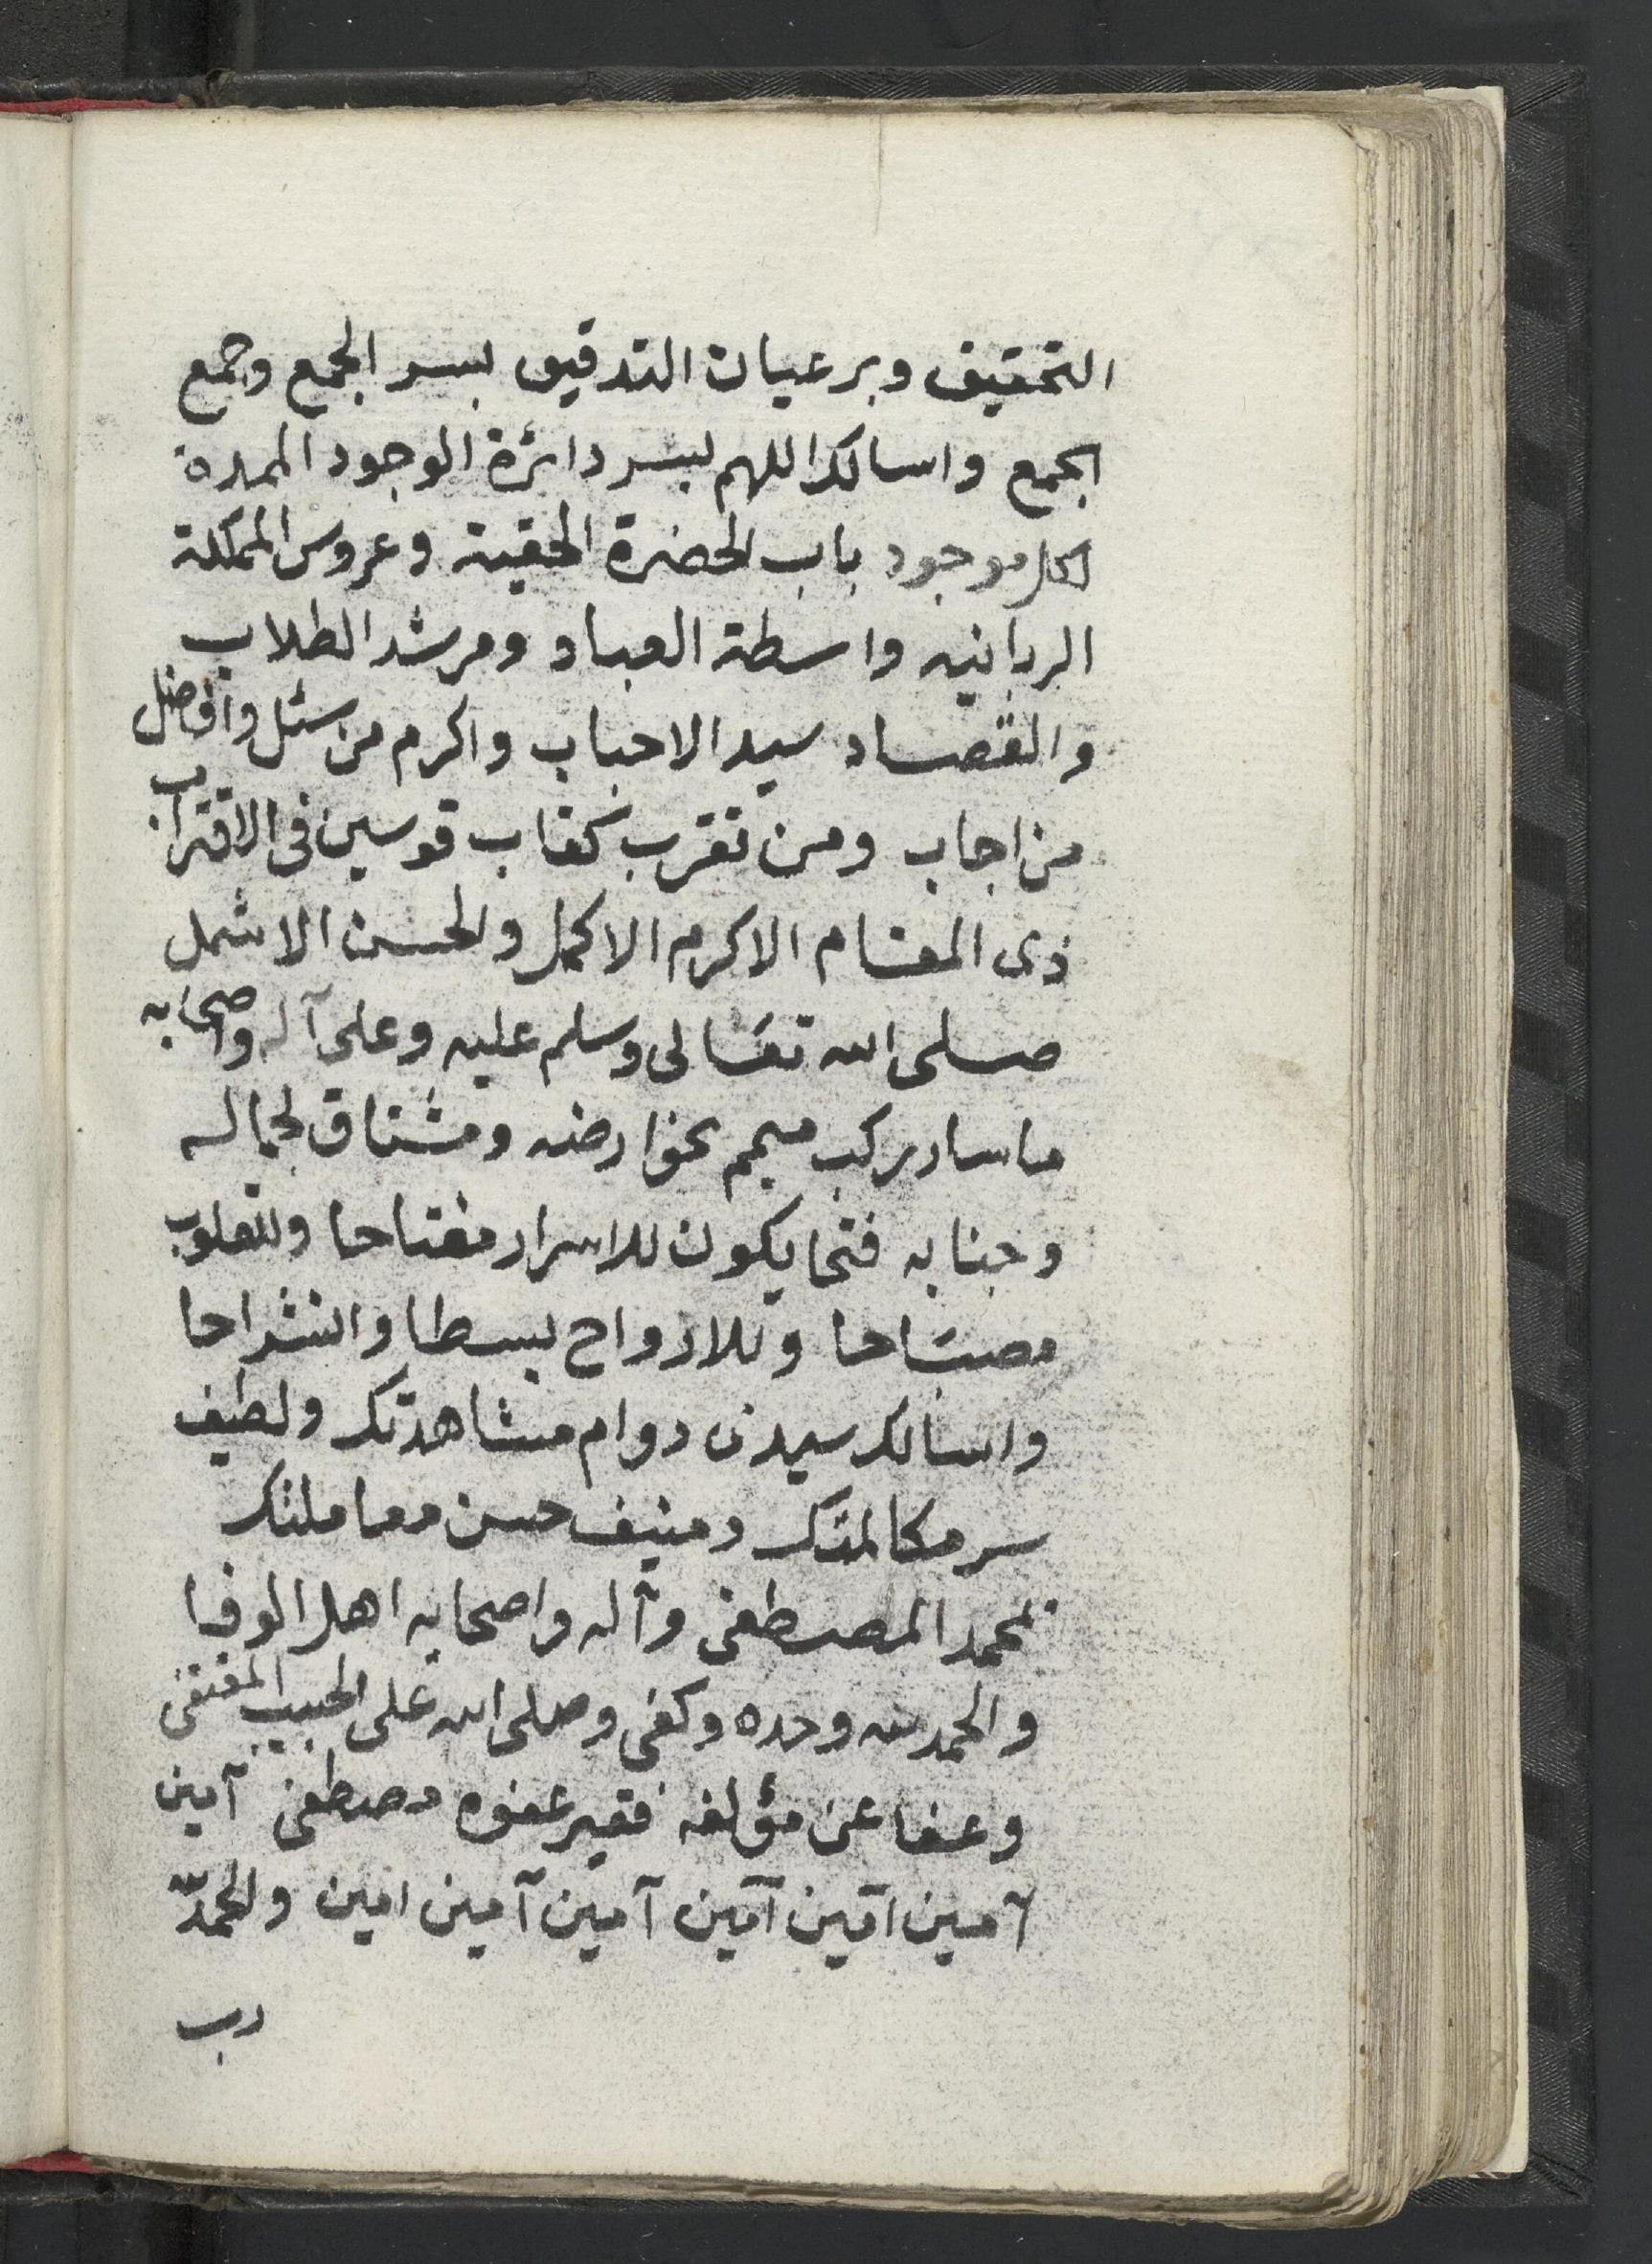 التحقيق وبرعيان التدقيق بسر الجمع وجمع
الجمع واسالك اللهم بسر دائرة الوجود الممدة
لكل موجود باب الحضرة الحقية وعروس المملكة
الربانيه واسطة العباد ومرشد الطلاب
والقصاد سيد الاحباب واكرم من سئل وافضل
من اجاب ومن تقرب كقاب قوسين فى الاقتراب
ذى المقام الاكرم الاكمل والحسن الاشمل
صلى الله تعالى وسلم عليه وعلى آله واصحابه
ما سار ركب ميمم نحو ارضه ومشتاق لجماله
وجنابه فتحا يكون للاسرار مفتاحا وللقلوب
مصباحا وللارواح بسطا وانشراحا
واسالك سيدى دوام مشاهدتك ولطيف
سر مكالمتك ومنيف حسن معاملتك
بمحمد المصطفى وآله واصحابه اهل الوفا
والحمد لله وحده وكفى وصلى الله على الحبيب المقتفى
وعفا عن مؤلفه فقير عفوه مصطفى آمين
آمين آمين آمين آمين آمين امين والحمد لله
رب